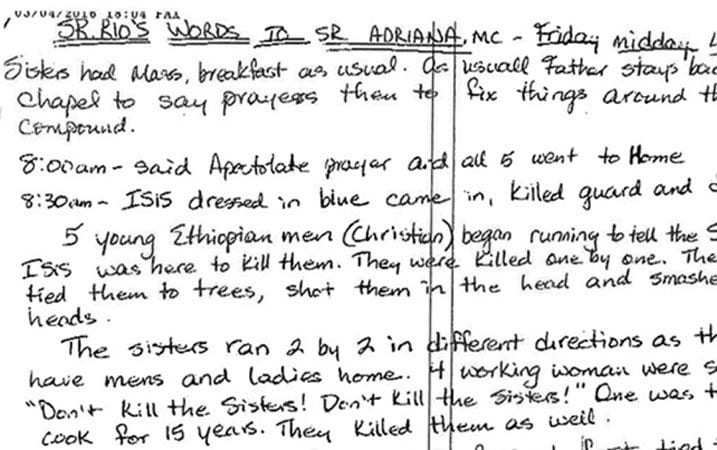 03/04/2016 18:04 FAX
SR. RIO'S WORDS TO SR ADRIANA, MC - Friday midday
Sisters had Mass, breakfast as usual. As usuall Father stays
Chapel to say prayess then to fix things around
Compound.
8:00am - said Apostolate prayer and all 5 went to Home
8:30am - ISIS dressed in blue came in, killed guard and
5 young Ethiopian men (Christian) began running to tell the
ISIS was here to kill them. They were killed one by one.
tied them to trees, shot them in the head and
heads.
The sisters ran 2 by 2 in different directions as
have mens and ladies home. 4 working woman were
"Don't kill the Sisters! Don't kill the sisters!" One was
cook for 15 years. They killed them as well.